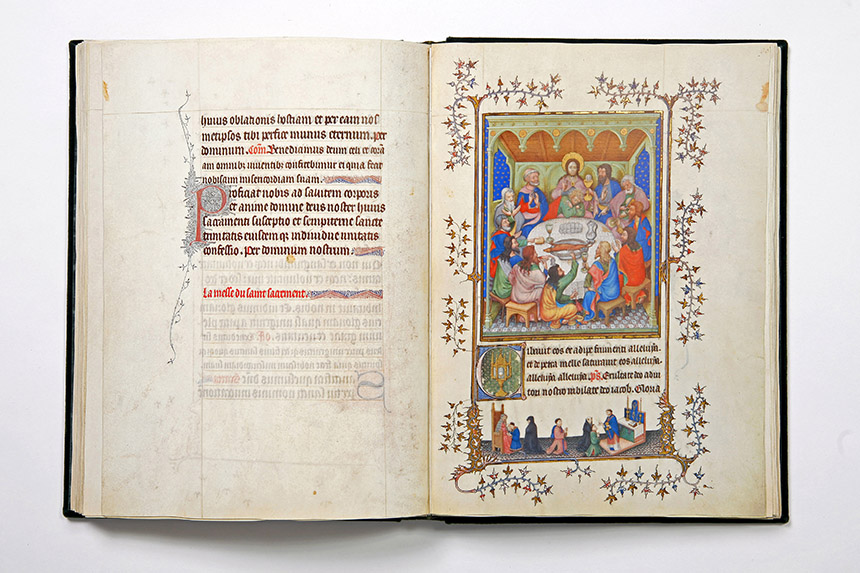 huius oblationis hostiam et per eam nos
metipsos tibi perfice munus eternum. Per
dominum. Com. Benedicimus deum celi et corā
am omnibus viventibus confitebimur ei quia fecit
nobiscum misericordiam suam.
Proficiat nobis ad salutem corporis
et anime domine deus noster huius
sacramenti susceptio et sempiterne sancte
trinitatis eiusdem q; individue unitatis
confessio. Per dominum nostrum.
La messe du saint sacrement.
Cibavit eos ex adipe frumenti alleluya.
et de petra melle saturavit eos alleluya.
alleluya. alleluya. ps. Exultate deo adiu
tori nostro iubilate deo iacob. Gloria